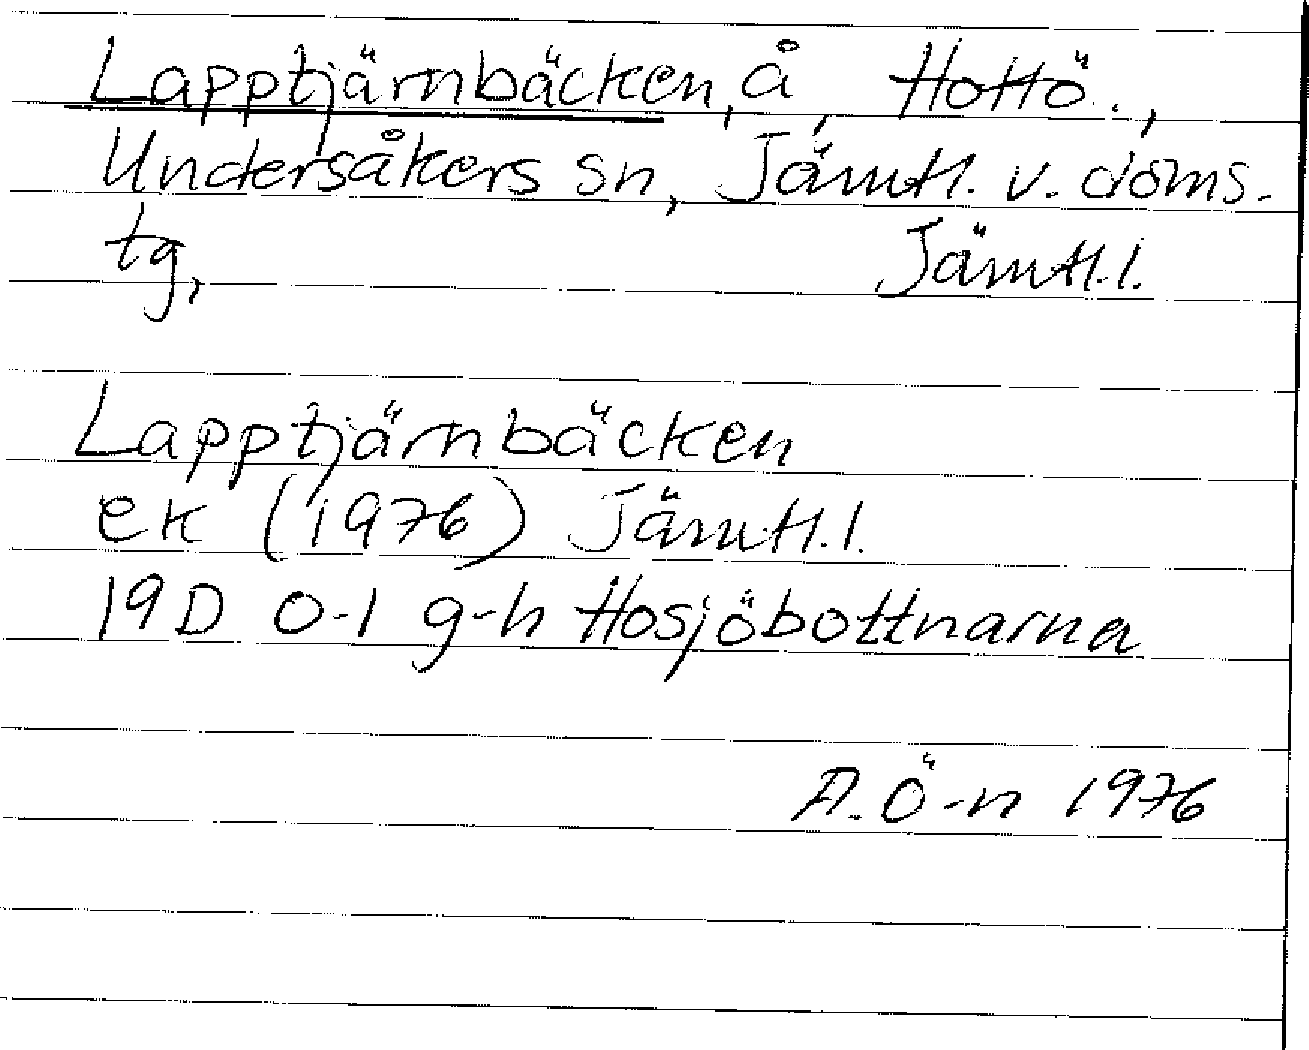 Lapptjärnbäcken, å, Hottö.,
Undersåkers sn, Jämtl. v. doms.
tg, Jämtl.l.
Lapptjärnbäcken
ek (1976) Jämtl.l.
19D 0-1 g-h Hosjöbottnarna
A. Ö-n 1976